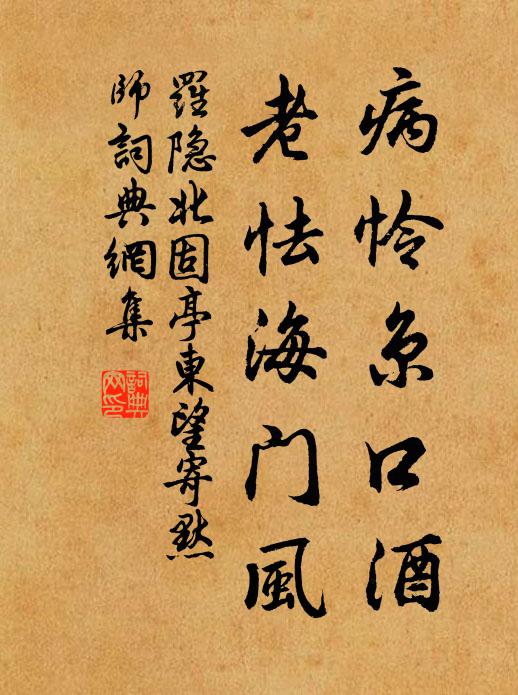 病怜京口酒
老怯海门風
羅隐北固亭東望寄默
師詞典網集
詞典
网印